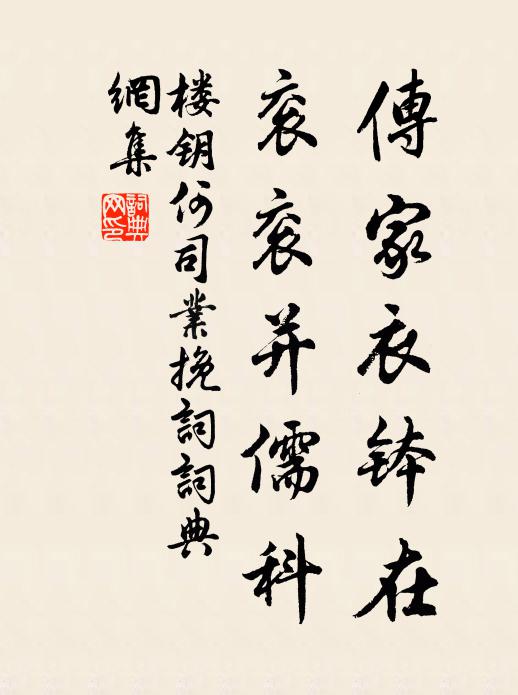 傳家衣鉢在
衮衮并儒科
楼钥何司業挽詞詞典
網集
詞典
网印